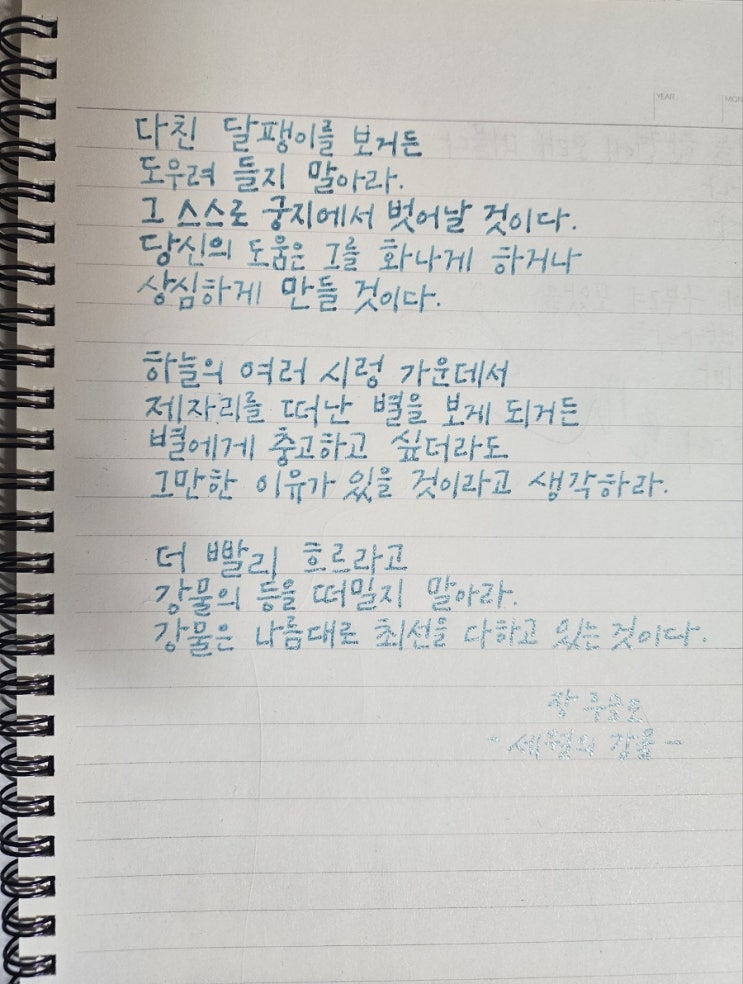 YEAR
MON
다친 달팽이를 보거든
도우려 들지 말아라.
그 스스로 궁지에서 벗어날 것이다.
당신의 도움은 그를 화나게 하거나
상심하게 만들 것이다.
하늘의 여러 시렁 가운데서
제자리를 떠난 별을 보게 되거든
별에게 충고하고 싶더라도
그만한 이유가 있을 것이라고 생각하라.
더 빨리 흐르라고
강물의 등을 떠밀지 말아라.
강물은 나름대로 최선을 다하고 있는 것이다.
장 루슬로
- 세월의 강물 -